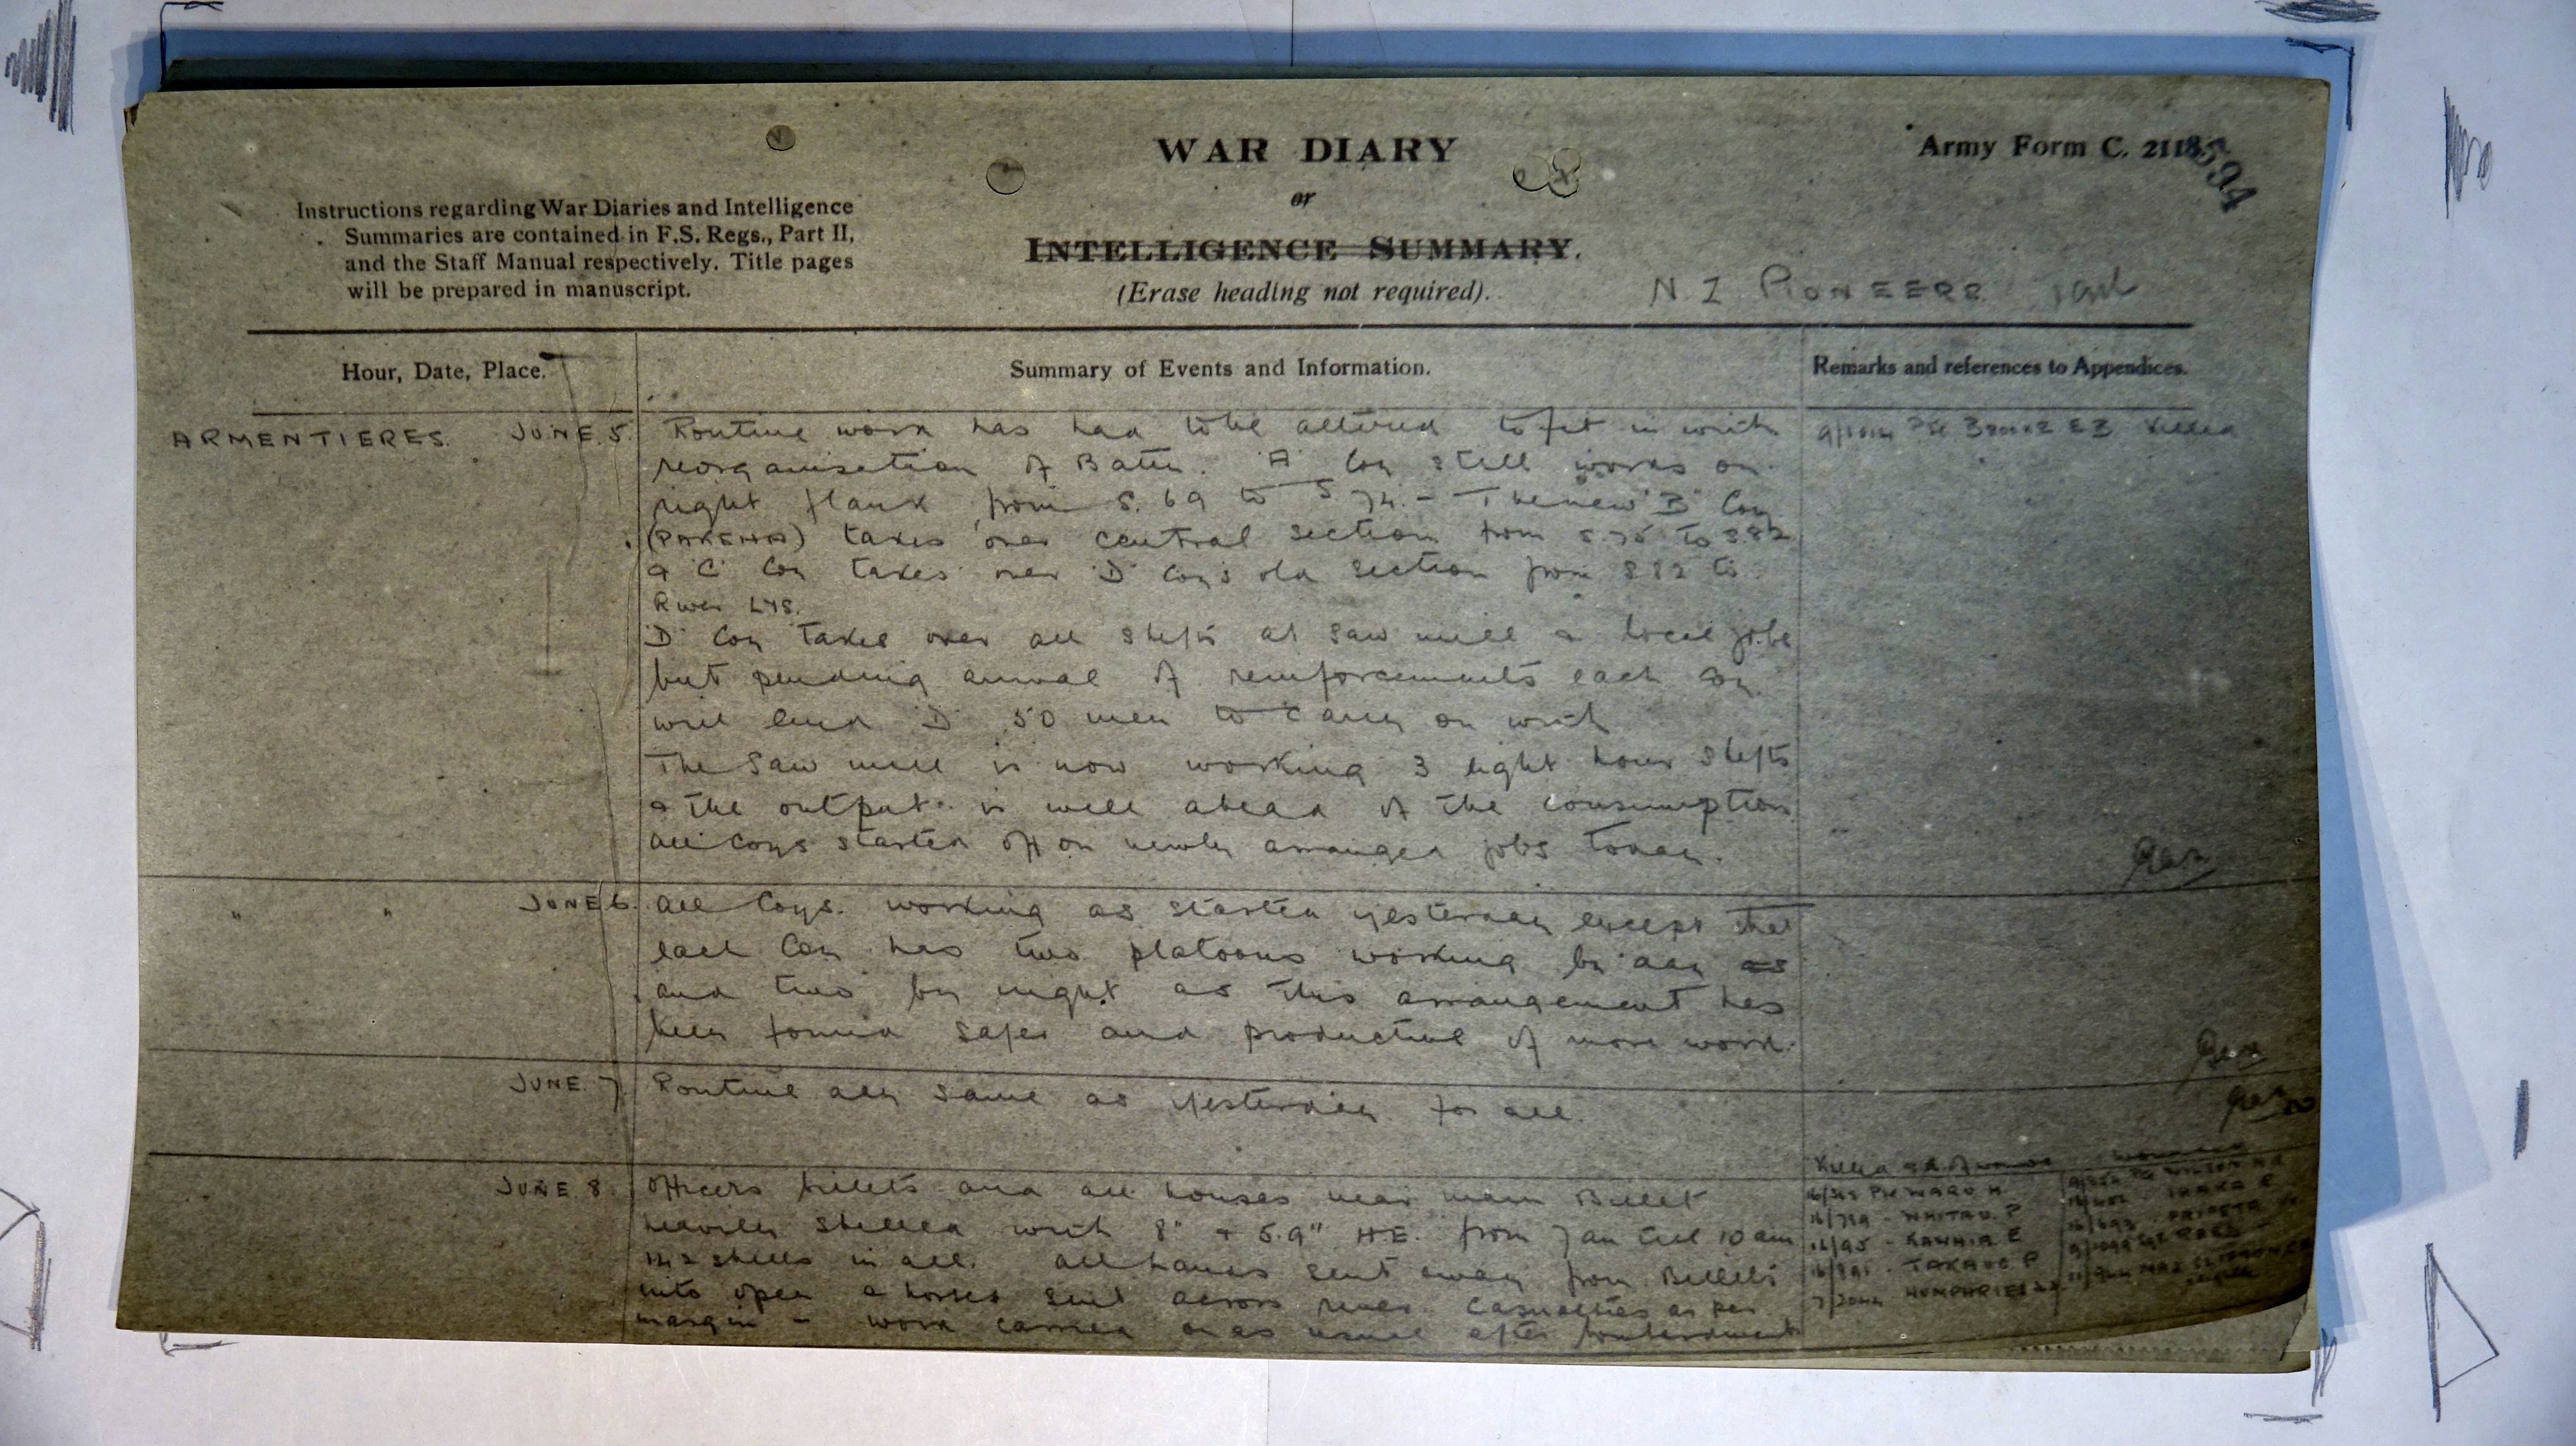 WAR DIARY
or
INTELLIGENCE SUMMARY.
(Erase heading not required).
Army Form C. 2118.
Instructions regarding War Diaries and Intelligence
Summaries are contained in F.S. Regs., Part II,
and the Staff Manual respectively. Title pages
will be prepared in manuscript.
N Z PIONEERS
Hour, Date, Place.
Summary of Events and Information.
Remarks and references to Appendices.
ARMENTIERES. JUNE. 5.
Routine work has had to be altered to fit in with
reorganisation of Battn. "A" Coy still works on
right flank from S. 69 to S 74. - The new "B" Coy
(PAKEHA) takes over central section from S 75 to S 82
& "C" Coy takes over "D" Coy's old section from S 82 to
River LYS.
"D" Coy takes over all shifts at saw mill & local jobs
but pending arrival of reinforcements each Coy
will lend "D" 50 men to carry on with
The Saw mill is now working 3 eight hour shifts
& the output is well ahead of the consumption
All Coys started off on newly arranged jobs today.
Killed
" " JUNE 6.
All Coys. working as started yesterday except that
each Coy has two platoons working by day as
and two by night as this arrangement has
been found safer and productive of more work.
JUNE. 7
Routine all same as yesterday for all.
JUNE 8.
Officers billets and all houses near main Billet
heavily shelled with 8" & 5.9" H.E. from 7 am till 10 am
142 shells in all. All hands sent away from Billets
into open & horses sent across river. Casualties as per
margin - work carried on as usual after bombardment
Killed
WHITAU. P
KAWHIA E
HUMPHRIES